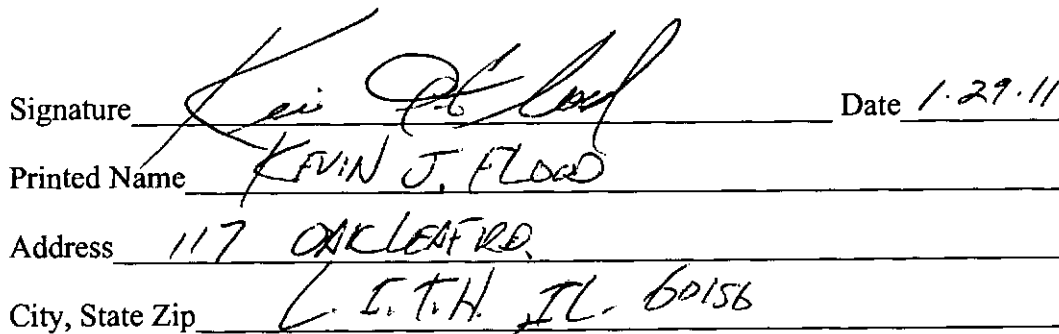 Signature Kevin J. Flood Date 1.29.11
Printed Name KEVIN J. FLOOD
Address 117 OAKLEAF RD.
City, State Zip L.I.T.H. IL. 60156